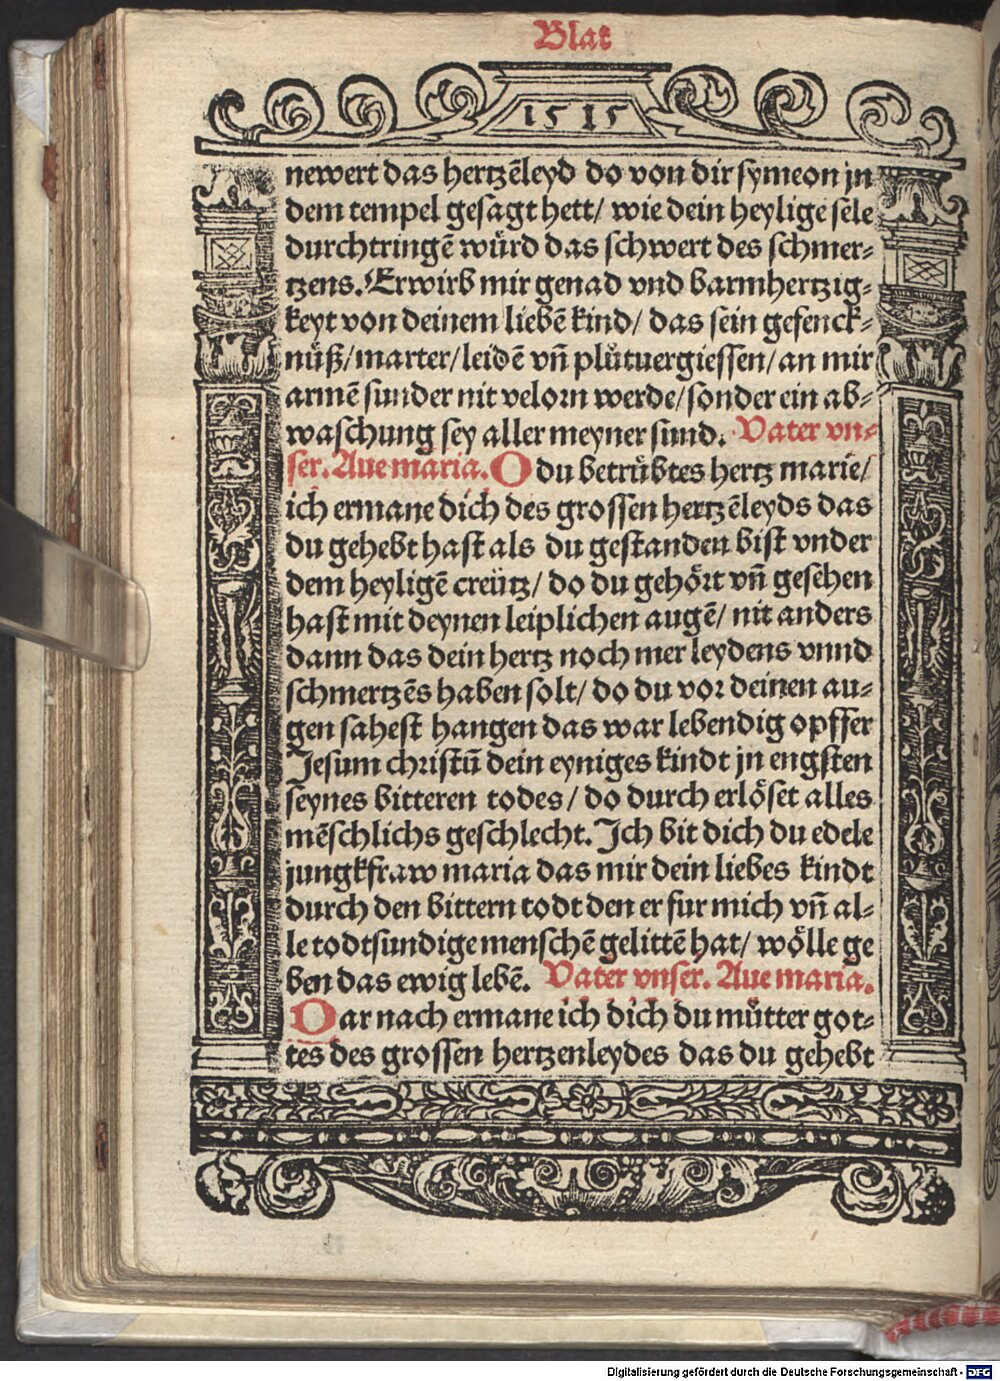 Blat
1515
newert das hertzēleyd do von dir symeon jn
dem tempel gesagt hett/ wie dein heylige sele
durchtringē wuͤrd das schwert des schmer⸗
tzens. Erwirb mir genad vnd barmhertzig⸗
keyt von deinem liebē kind/ das sein gefenck⸗
nuͤß/marter/leidē vn̄ pluͤtuergiessen/an mir
armē sunder nit velorn werde/sonder ein ab⸗
waschung sey aller meyner sund. Vater vn⸗
ser. Aue maria. O du betruͤbtes hertz marie/
ich ermane dich des grossen hertzēleyds das
du gehebt hast als du gestanden bist vnder
dem heyligē creuͤtz/ do du gehoͤrt vn̄ gesehen
hast mit deynen leiplichen augē/ nit anders
dann das dein hertz noch mer leydens vnnd
schmertzēs haben solt/ do du vor deinen au⸗
gen sahest hangen das war lebendig opffer
Jesum christū dein eyniges kindt jn engsten
seynes bitteren todes/ do durch erloͤset alles
mēschlichs geschlecht. Ich bit dich du edele
jungkfraw maria das mir dein liebes kindt
durch den bittern todt den er fur mich vn̄ al⸗
le todtsundige menschē gelittē hat/ woͤlle ge
ben das ewig lebē. Vater vnser. Aue maria.
Dar nach ermane ich dich du muͤtter got⸗
tes des grossen hertzenleydes das du gehebt
Digitalisierung gefördert durch die Deutsche Forschungsgemeinschaft - DFG